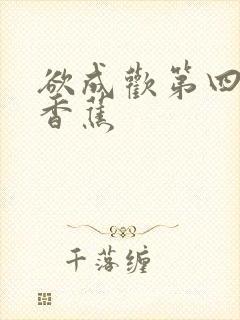 欲成歡第四
香蕉
千落缠